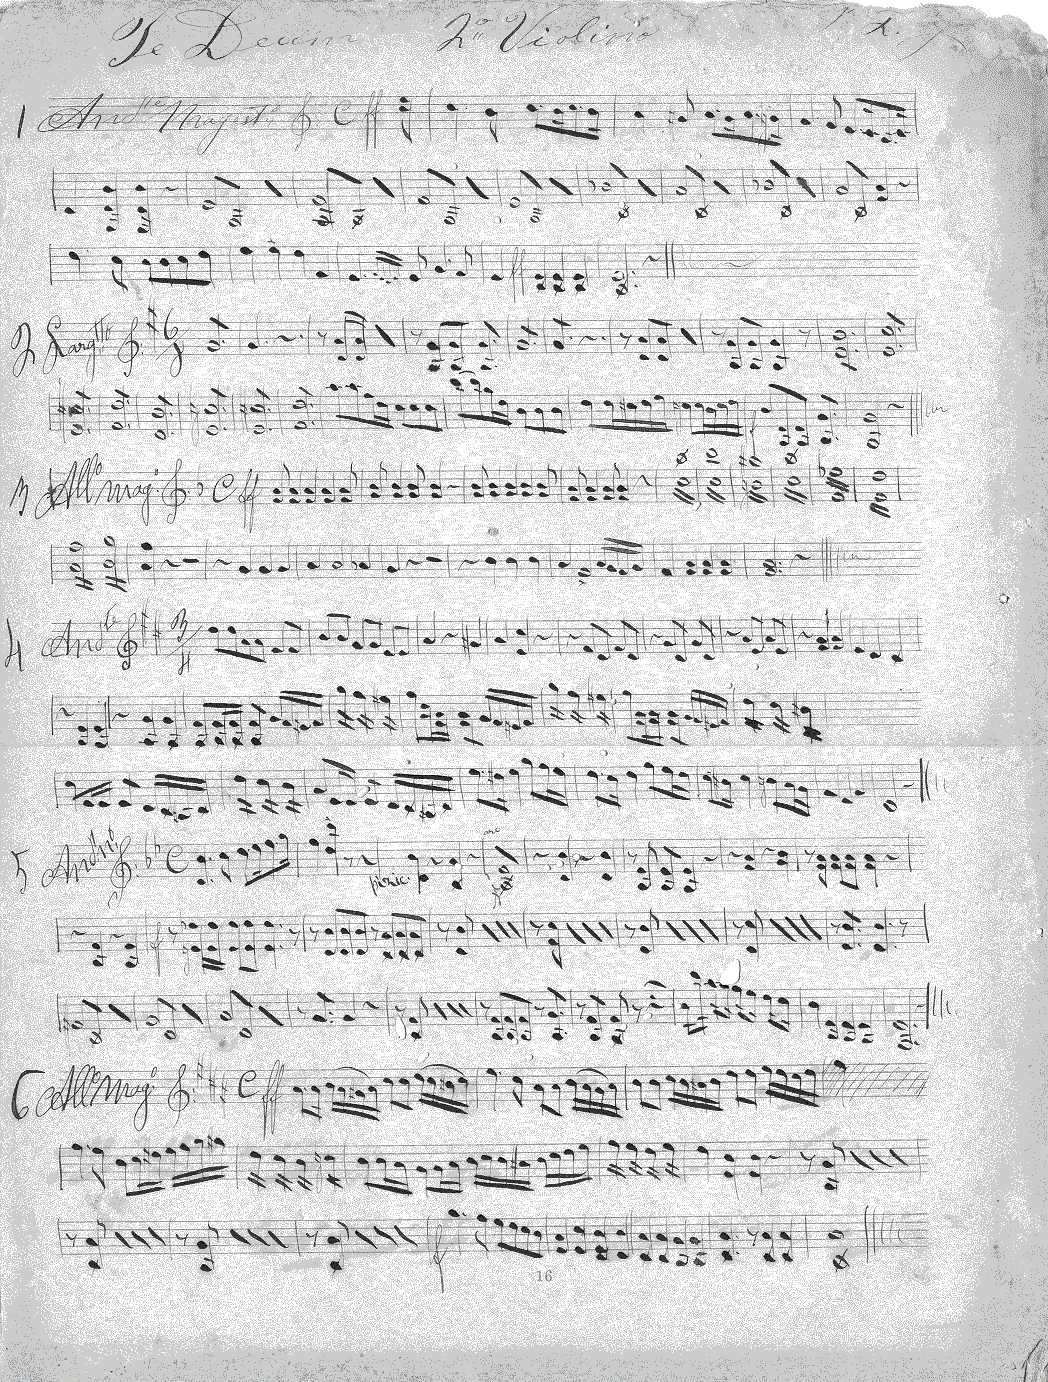 Te Deum 2º Violino
1 And.te Magest. C ff
2 Larg.tto 6
3 All.o mag.o C ff
4 And.te 3/4
5 And.no C
pizic.
arc
f
6 All.o Mag.o C ff
f
16